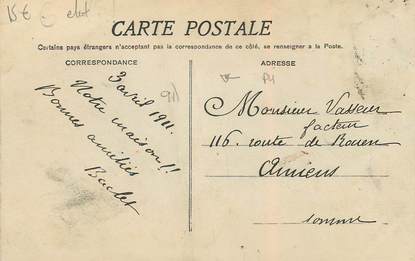 15€ c
CARTE POSTALE
Certains pays étrangers n'acceptant pas la correspondance de ce côté, se renseigner à la Poste.
CORRESPONDANCE
3 avril 1911.
Notre maison!!
Bonnes amitiés
Baclet
ADRESSE
Monsieur Vasseur
facteur
116 route de Rouen
Amiens
Somme